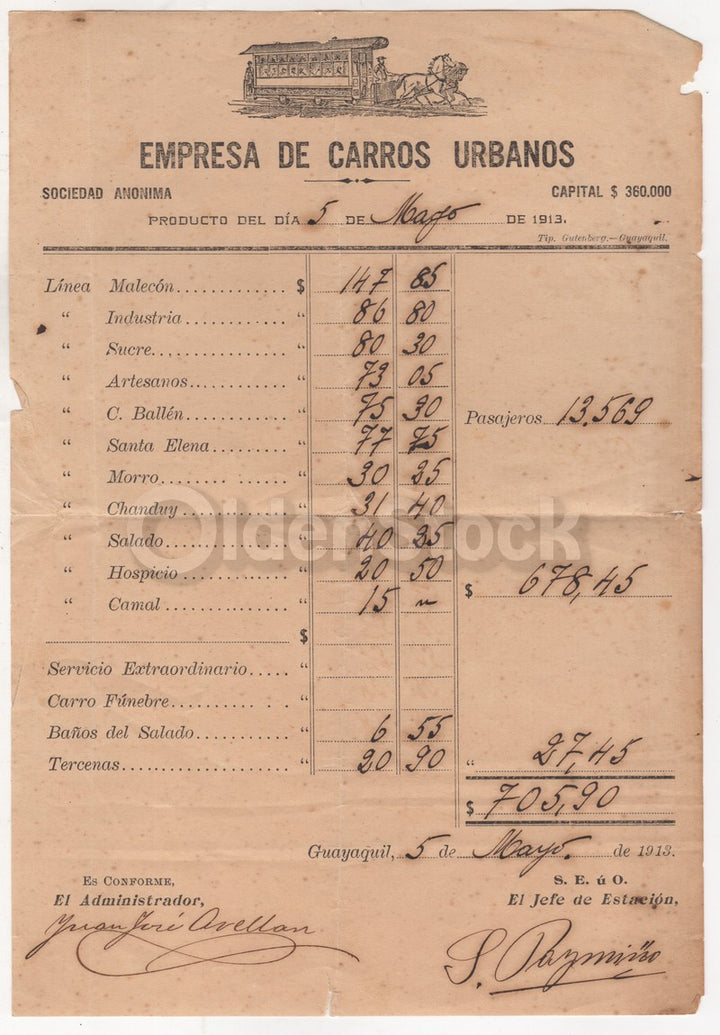 EMPRESA DE CARROS URBANOS
SOCIEDAD ANONIMA CAPITAL $ 360,000
PRODUCTO DEL DÍA 5 DE Mayo DE 1913.
Tip. Gutenberg.—Guayaquil.
Línea Malecón............ $ 147 85
“ Industria............ “ 86 80
“ Sucre............ “ 80 30
“ Artesanos............ “ 73 05
“ C. Ballén............ “ 75 30
Pasajeros 13.569
“ Santa Elena............ “ 77 75
“ Morro............ “ 30 25
“ Chanduy............ “ 31 40
“ Salado............ “ 40 25
“ Hospicio............ “ 20 50
$ 678,45
“ Camal............ “ 15 „
$
Servicio Extraordinario..... “
Carro Fúnebre............ “
Baños del Salado............ “ 6 55
Tercenas............ “ 20 90
“ 27,45
$ 705,90
Guayaquil, 5 de Mayo. de 1913.
ES CONFORME, S. E. ú O.
El Administrador, El Jefe de Estación,
Juan José Avellan
S. Pazmiño
OlderStock